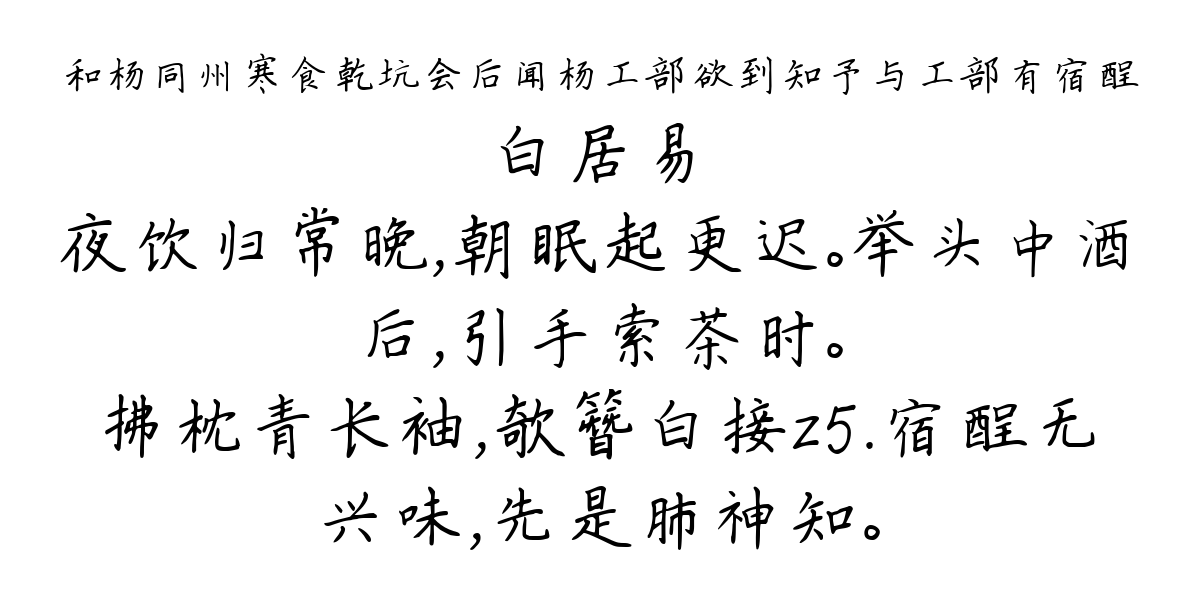 和杨同州寒食乾坑会后闻杨工部欲到知予与工部有宿酲
白居易
夜饮归常晚,朝眠起更迟。举头中酒
后,引手索茶时。
拂枕青长袖,欹簪白接z5.宿酲无
兴味,先是肺神知。